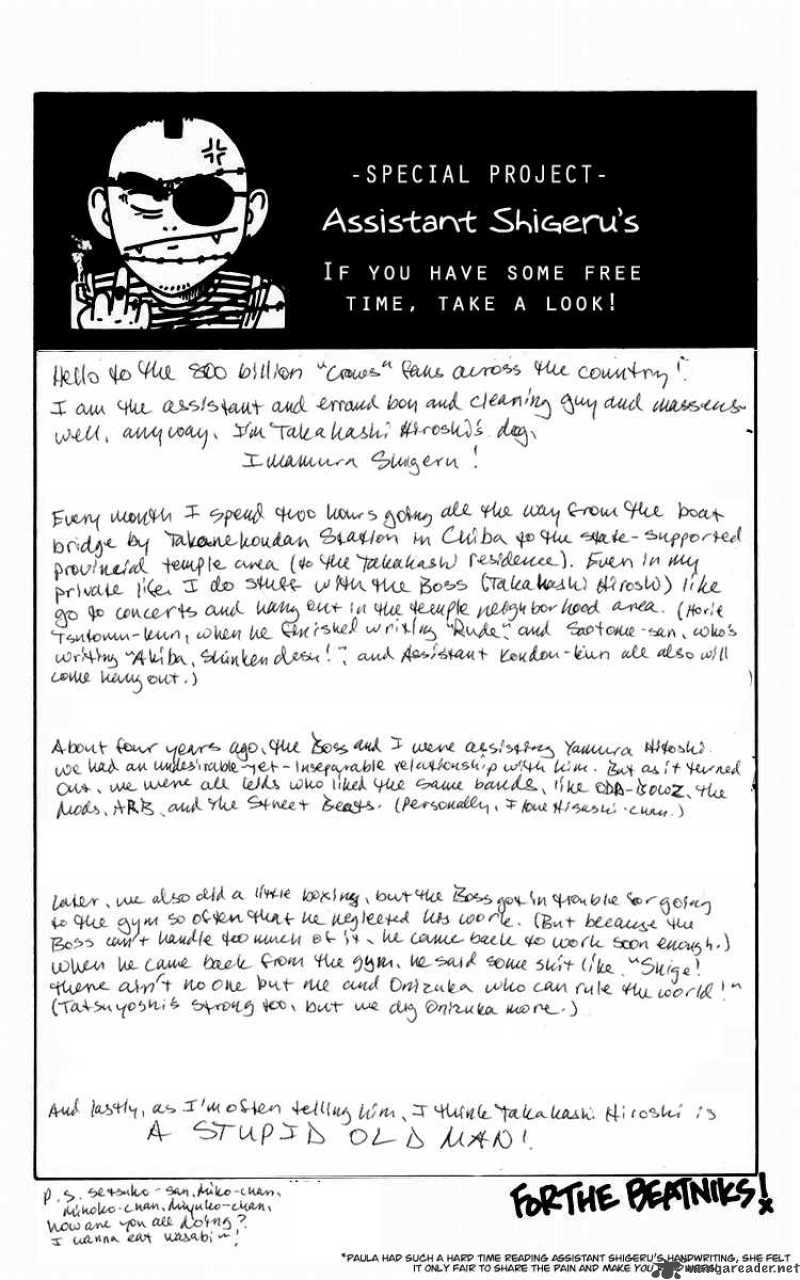 -SPECIAL PROJECT-
Assistant Shigeru's
IF YOU HAVE SOME FREE
TIME, TAKE A LOOK!
Hello to the 800 billion "Crows" fans across the country!
I am the assistant and errand boy and cleaning guy and
well, anyway, I'm Takahashi Hiroshi's dog,
Imamura Shigeru!
Every month I spend two hours going all the way from the boat
bridge by Station in Chiba to the state-supported
provincial temple area (to the Takahashi residence). Even in my
private life, I do stuff with the Boss (Takahashi Hiroshi) like
go to concerts and hang out in the temple neighborhood area. (Horie
Tsutomu-kun, when he finished writing "Rude," and Saotome-san, who's
writing "Akiba, Shinken desu!", and Assistant Kondou-kun all also will
come hang out.)
About four years ago, the Boss and I were assisting Yamura Hitoshi.
We had an undesirable-yet-inseparable relationship with him. But as it turned
out, we were all kids who liked the same bands, like the
Mods, ARB, and the Street Beats. (Personally, I love Higashi-chan.)
Later, we also did a little boxing, but the Boss got in trouble for going
to the gym so often that he neglected his work. (But because the
Boss can't handle too much of it, he came back to work soon enough.)
When he came back from the gym, he said some shit like, "Shige!
There ain't no one but me and Onizuka who can rule the world!"
(Tatsuyoshi's strong too, but we dig Onizuka more.)
And lastly, as I'm often telling him, I think Takahashi Hiroshi is
A STUPID OLD MAN!
P.S. Setsuko-san, Miko-chan,
how are you all doing?
I wanna eat wasabi~!
FOR THE BEATNIKS!
*PAULA HAD SUCH A HARD TIME READING ASSISTANT SHIGERU'S HANDWRITING, SHE FELT
IT ONLY FAIR TO SHARE THE PAIN AND MAKE YOU
mangareader.net